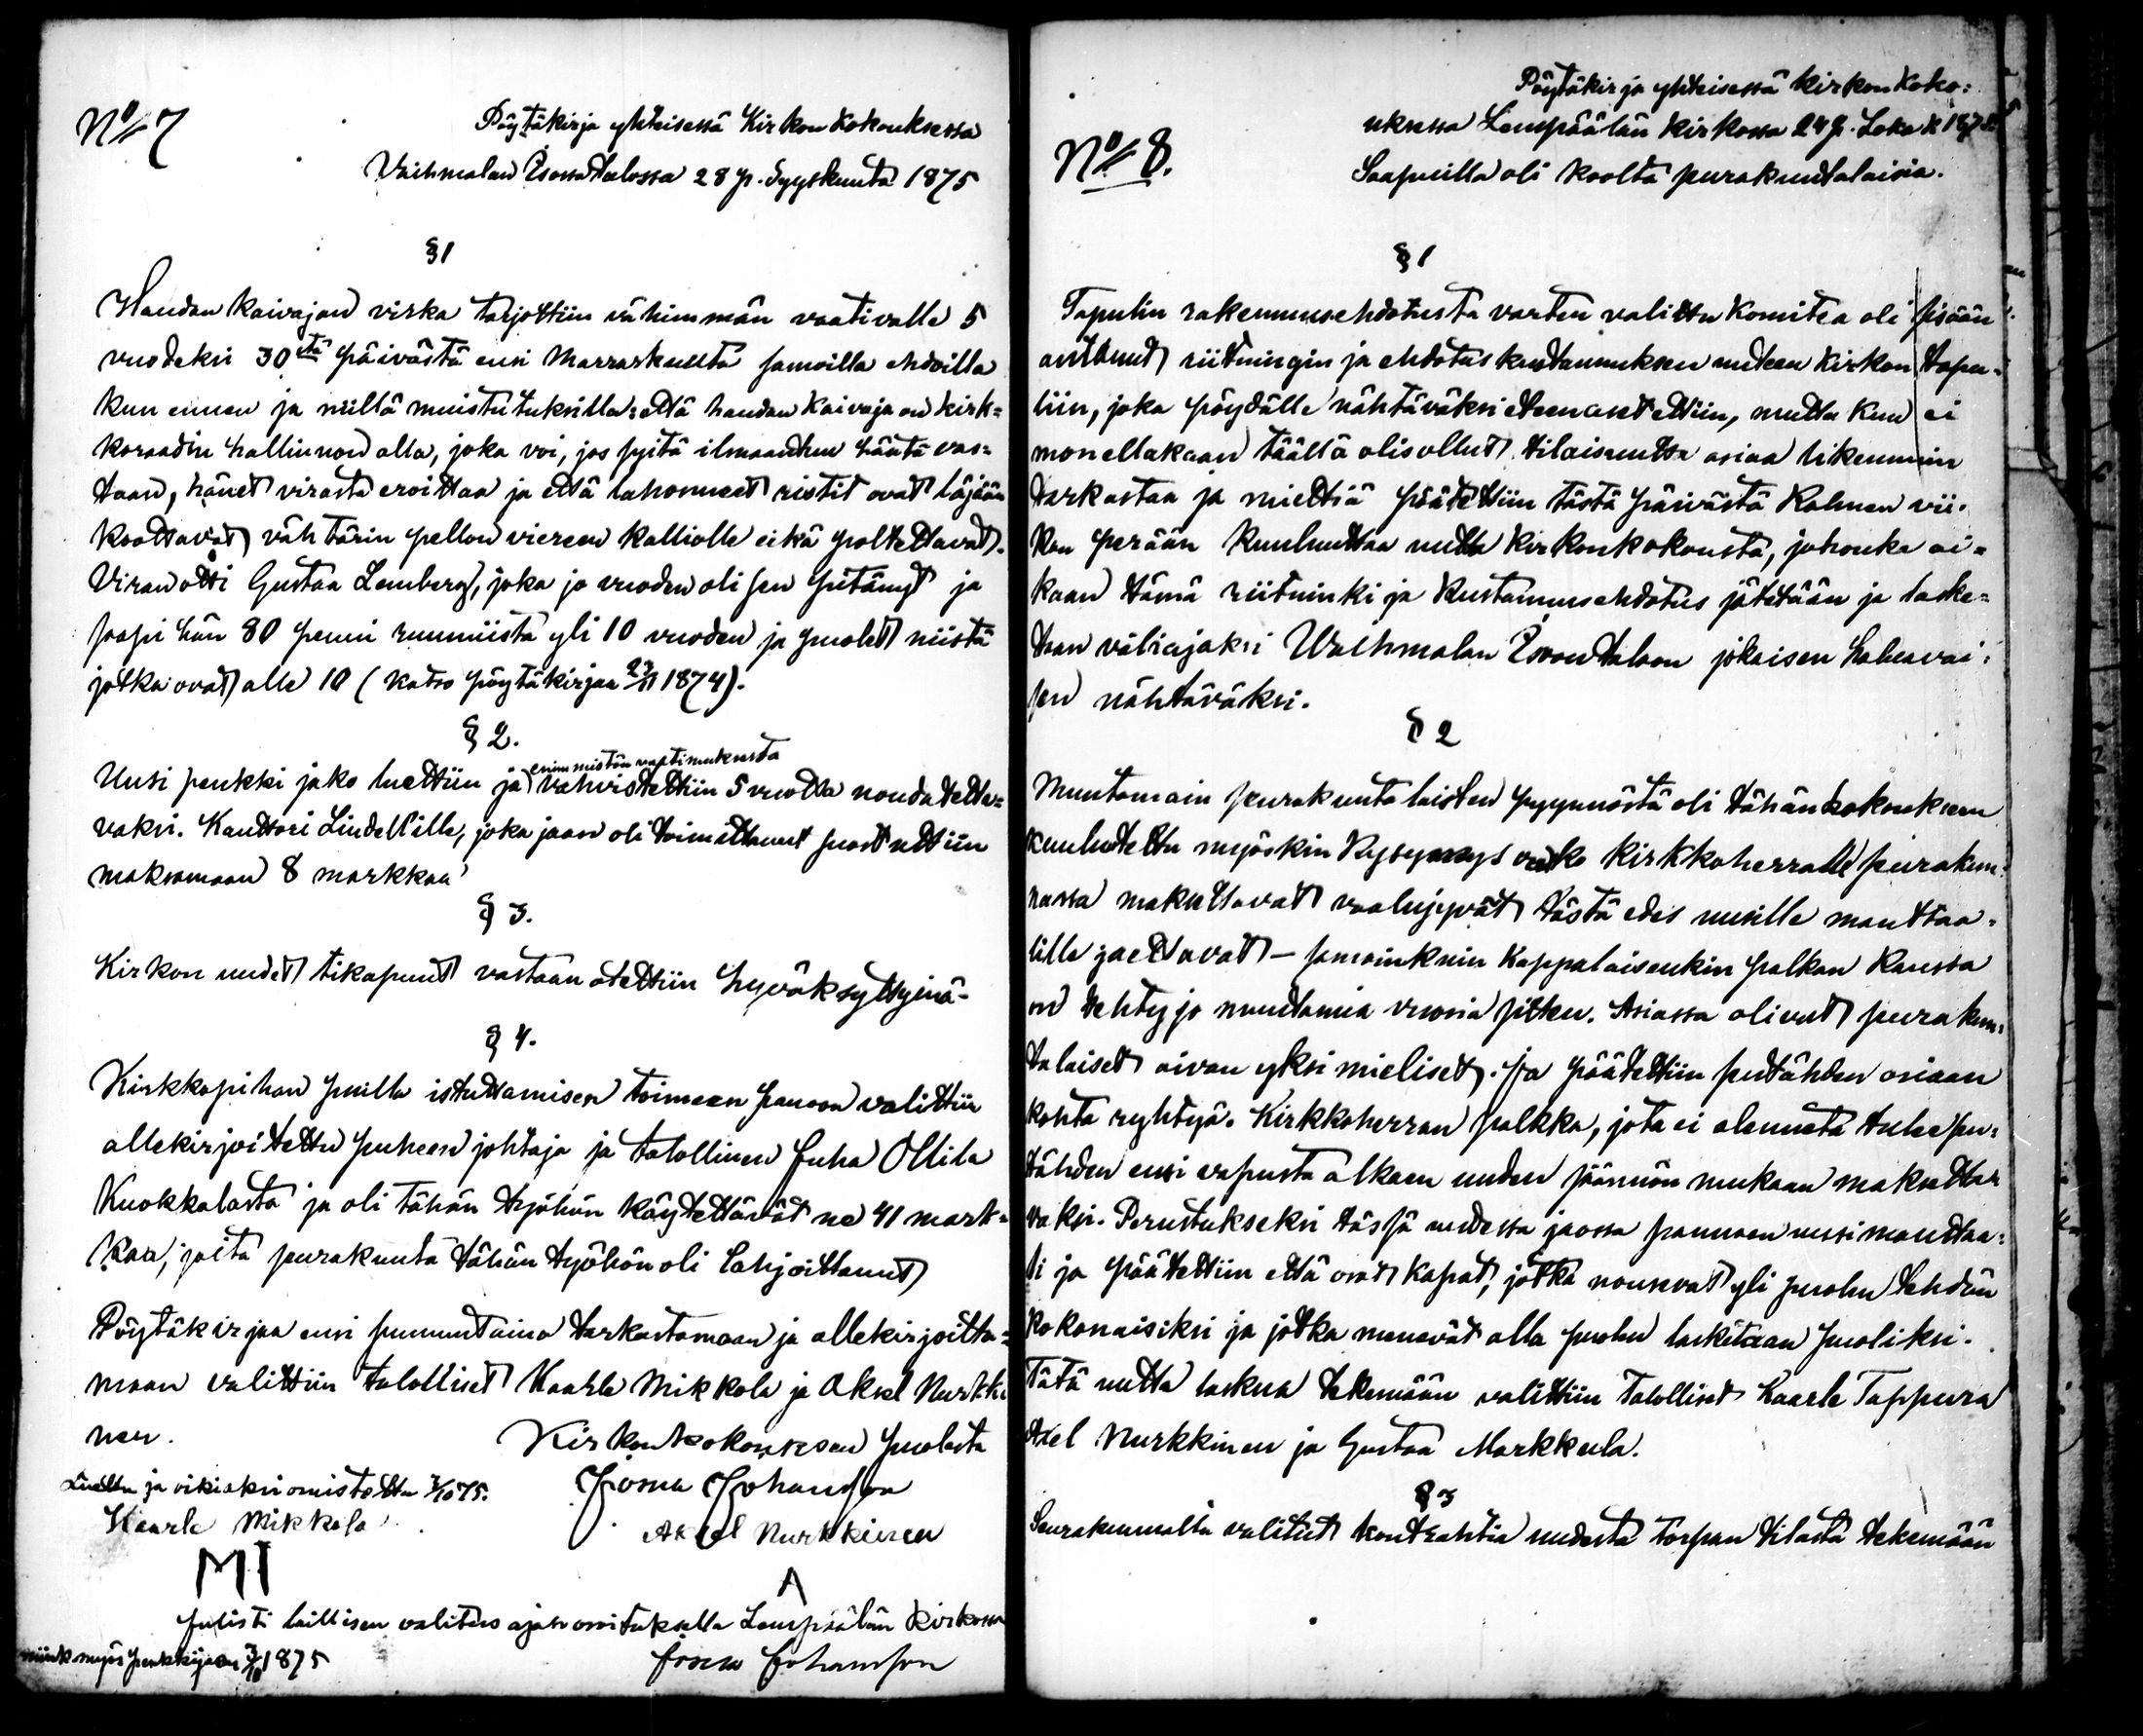 No 7
Pöytäkirja yhteisessä Kirkon kokouksessa
Vaihmalan Isossa talossa 28 p. Syyskuuta 1875
§ 1
Haudan kaivajan virka tarjottiin vähimmän vaativalle 5
vuodeksi 30stä päivästä ensi Marraskuuta samoilla ehdoilla
kun ennen ja niillä muistutuksilla: että haudan kaivaja on kirk=
koraadin hallinnon alla, joka voi, jos syitä ilmaantuu häntä vas=
taan, hänet virasta eroittaa ja että lahonneet ristit ovat läjään
koottavat vähtärin pellon viereen kalliolle eikä poltettavat.
Viran otti Gustaa Lemberg, joka jo vuoden oli sen pitänyt ja
saapi hän 80 penni ruumiista yli 10 vuoden ja puolet niistä
jotka ovat alle 10 (katso pöytäkirjaa 23/11 1874).
§ 2.
Uusi penkki jako luettiin ja enimmistön vaatimuksesta vahvistettiin 5 vuotta noudatetta=
vaksi. Kanttori Lindell'ille, joka jaon oli toimittanut suostuttiin
maksamaan 8 markkaa
§ 3.
Kirkon uudet tikapuut vastaan otettiin hyväksyttyinä.
§ 4.
Kirkkopihan puilla istuttamisen toimeen panoon valittiin
allekirjoitettu puheen johtaja ja talollinen Juha Ollila
Kuokkalasta ja oli tähän työhön käytettävät ne 41 mark=
kaa, joita seurakunta tähän työhön oli lahjoittanut
Pöytäkirjaa ensi sunnuntaina tarkastamaan ja allekirjoitta=
maan valittiin talolliset Kaarle Mikkola ja Aksel Nurkki
nen.
Kirkonkokouksen puolesta
Luettu ja oikiaksi omistettu 3/10 75.
Josua Johansson
Kaarle Mikkola
Aksel Nurkkinen
MI
A
Julisti laillisen valitus ajan osoituksella Lempäälän Kirkossa
niink myös penkkijaon 3/10 1875
Josua Johansson
No 8.
Pöytäkirja yhteisessä kirkon koko=
uksessa Lempäälän kirkossa 24 p. Lokak 1875
Saapuilla oli koolta seurakuntalaisia.
§ 1
Tapulin rakennusehdotusta varten valittu komitea oli sisään
antanut riitningin ja ehdotus kustannuksen uuteen kirkon tapu=
liin, joka pöydälle nähtäväksi eteenasetettiin, mutta kun ei
monellakaan täällä olis ollut tilaisuutta asiaa likemmin
tarkastaa ja miettiä päätettiin tästä päivästä kolmen vii=
kon perään kuuluuttaa uutta kirkonkokousta, johonka ai=
kaan tämä riitninki ja kustannusehdotus jätetään ja laske=
taan väliajaksi Vaihmalan Isoon taloon jokaisen haluavai=
sen nähtäväksi.
§ 2
Muutamain seurakuntalaisten pyynnöstä oli tähän kokoukseen
kuulutettu myöskin Kysymys vaiko kirkkoherralle seurakun=
nassa maksettavat vaalujyvät tästä edes uusille manttaa=
lille jaettavat — samoinkuin Kappalaisenkin palkan kanssa
on tehty jo muutamia vuosia sitten. Asiassa olivat seurakun=
talaiset aivan yksimieliset. ja päätettiin sentähden asiaan
kohta ryhtyä. Kirkkoherran palkka, jota ei alenneta tulee sen=
tähden ensi vapusta alkaen uuden säännön mukaan maksetta
vaksi. Perustukseksi tässä uudessa jaossa pannaan uusi manttaa=
li ja päätettiin että osat kapat, jotka nousevat yli puolen tehdän
kokonaisiksi ja jotka menevät alla puolen lasketaan puoliksi.
Tätä uutta laskua tekemään valittiin Talolliset Kaarle Tappura
Axel Nurkkinen ja Gustaa Markkula.
§ 3
Seurakunnalta valitut kontrahtia uudesta torpan tilasta tekemään